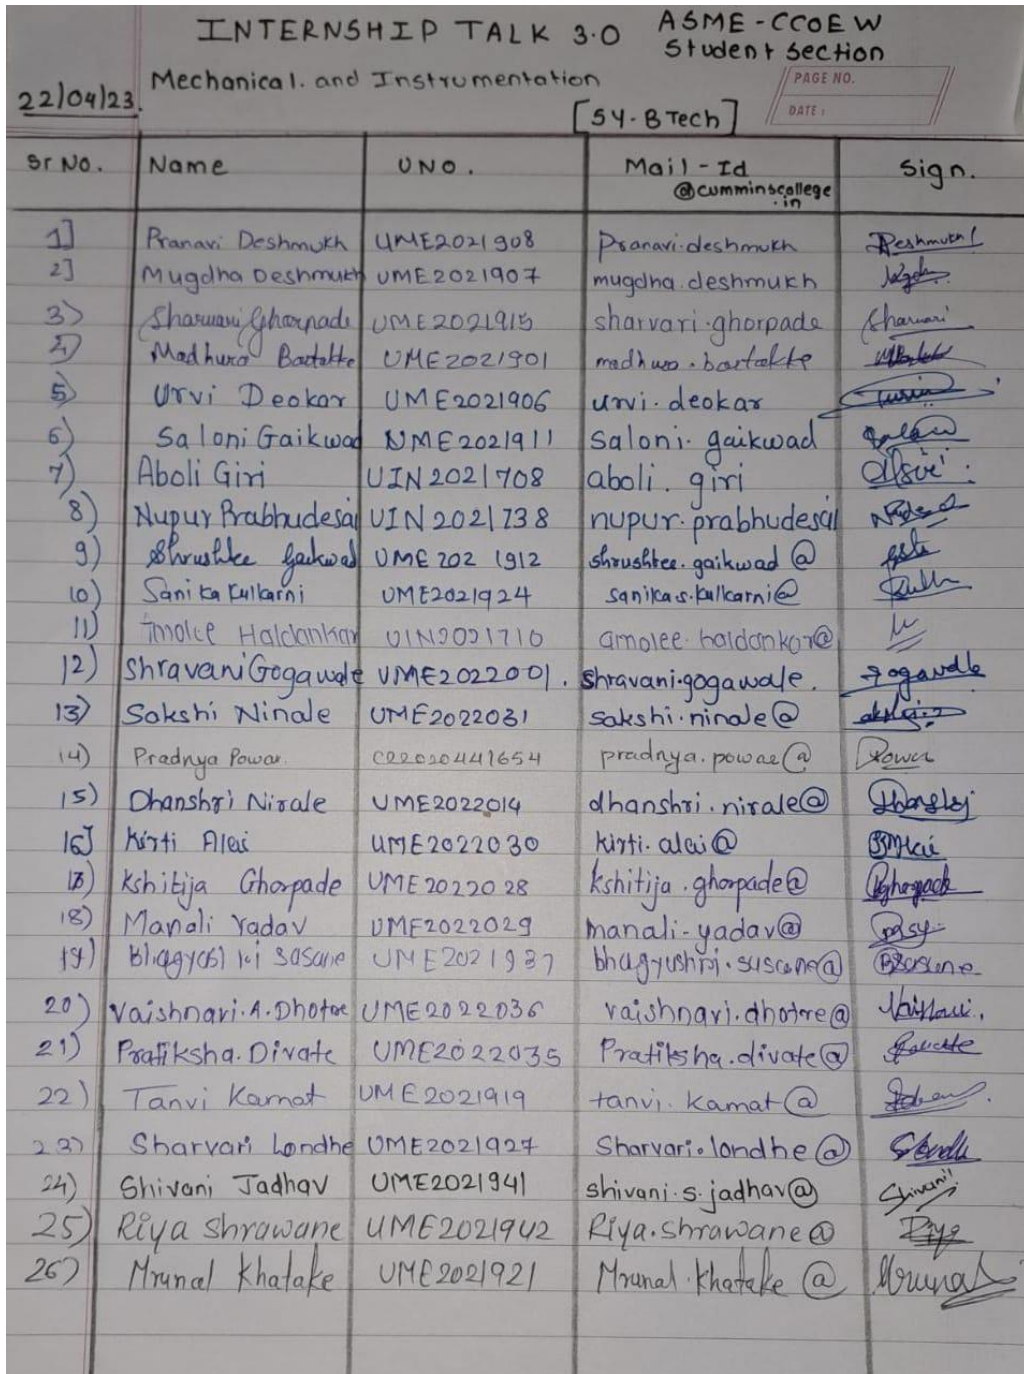 INTERNSHIP TALK 3.0 ASME-CCOEW
Student Section
Mechanical. and Instrumentation
PAGE NO.
DATE:
22/04/23.
[SY-BTech]
Sr No. Name UNO. Mail-Id Sign.
@cumminscollege
.in
1] Pranavi Deshmukh UME2021908 pranavi.deshmukh Deshmukh
2] Mugdha Deshmukh UME2021907 mugdha.deshmukh
3) Sharvari Ghorpade UME2021915 sharvari.ghorpade Sharvari
4) Madhura Bartakke UME2021901 madhura.bartakke
5) Urvi Deokar UME2021906 urvi.deokar
6) Saloni Gaikwad UME2021911 saloni.gaikwad
7) Aboli Giri UIN2021708 aboli.giri
8) Nupur Prabhudesai UIN2021738 nupur.prabhudesai
9) Shrushtee Gaikwad UME2021912 shrushtee.gaikwad@
10) Sanika Kulkarni UME2021924 sanika.s.kulkarni@
11) Amolee Haldankar UIN2021710 amolee.haldankar@
12) Shravani Gogawale UME2022001. shravani.gogawale. Gogawale
13) Sakshi Ninale UME2022031 sakshi.ninale@
14) Pradnya Powar. C22020441654 pradnya.powar@ Power
15) Dhanshri Nirale UME2022014 dhanshri.nirale@
16] Kirti Alai UME2022030 kirti.alai@
17) Kshitija Ghorpade UME2022028 kshitija.ghorpade@ Kghorpade
18) Manali Yadav UME2022029 manali-yadav@
19) Bhagyashri Sasane UME2021937 bhagyashri.sasane@ BSasane
20) Vaishnavi.A.Dhotre UME2022036 vaishnavi.dhotre@ Vaishnavi.
21) Pratiksha.Divate UME2022035 Pratiksha.divate@
22) Tanvi Kamat UME2021919 tanvi.kamat@
23) Sharvari Londhe UME2021927 Sharvari.londhe@
24) Shivani Jadhav UME2021941 shivani.s.jadhav@ Shivani
25) Riya Shrawane UME2021942 Riya.shrawane@ Riya
26) Mrunal Khatake UME2021921 Mrunal.Khatake@ Mrunal